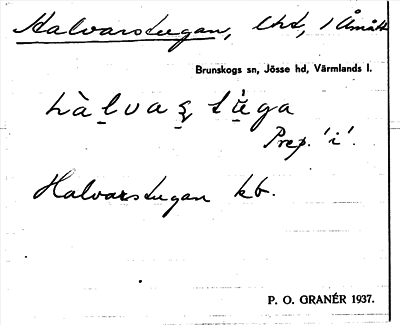 Halvarstugan, lht, i Åmått
Brunskogs sn, Jösse hd, Värmlands l.
hàlvaş tu̇ga
Prep. 'i'.
Halvarstugan kb.
P. O. GRANÉR 1937.